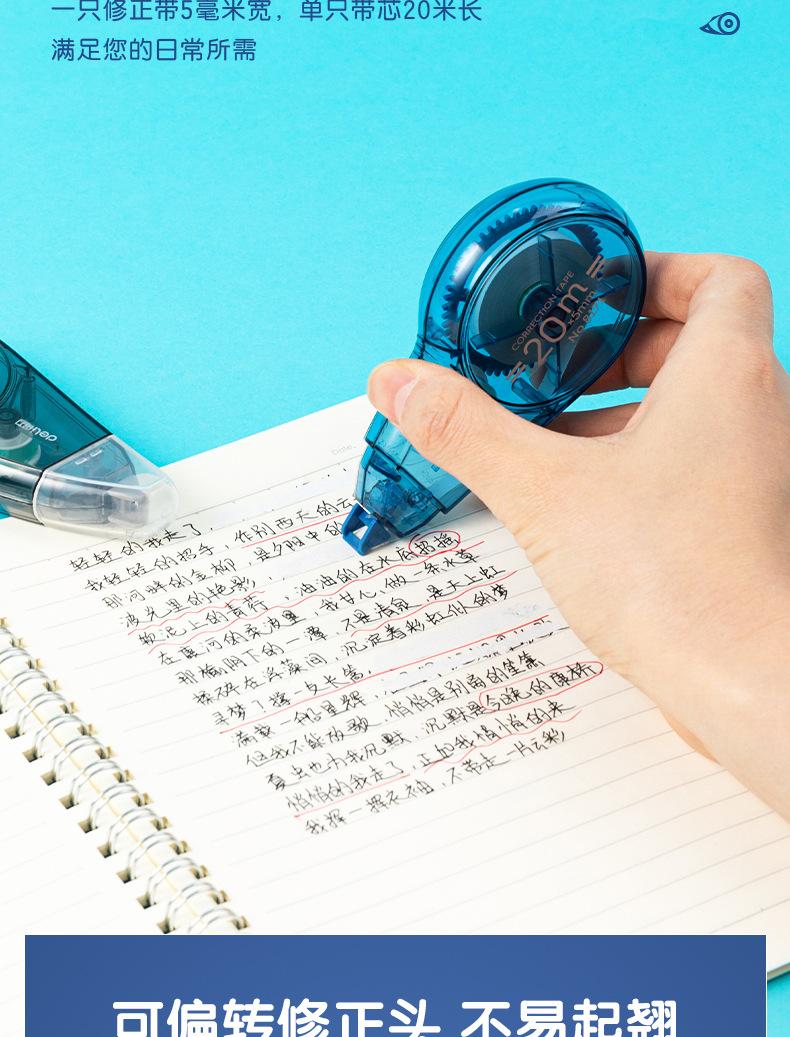 一只修正带5毫米宽，单只带芯20米长
满足您的日常所需
CORRECTION TAPE
20m
×5mm
deli
Date.
轻轻的我走了，
我轻轻的招手，作别西天的云
那河畔的金柳，是夕阳中的
波光里的艳影，
软泥上的青荇，油油的在水底招摇
在康河的柔波里，我甘心做一条水草
那榆阴下的一潭，不是清泉，是天上虹
揉碎在浮藻间，沉淀着彩虹似的梦
寻梦？撑一支长篙，
满载一船星辉，
但我不能放歌，悄悄是别离的笙箫
夏虫也为我沉默，沉默是今晚的康桥
悄悄的我走了，正如我悄悄的来
我挥一挥衣袖，不带走一片云彩
可偏转修正头 不易起翘